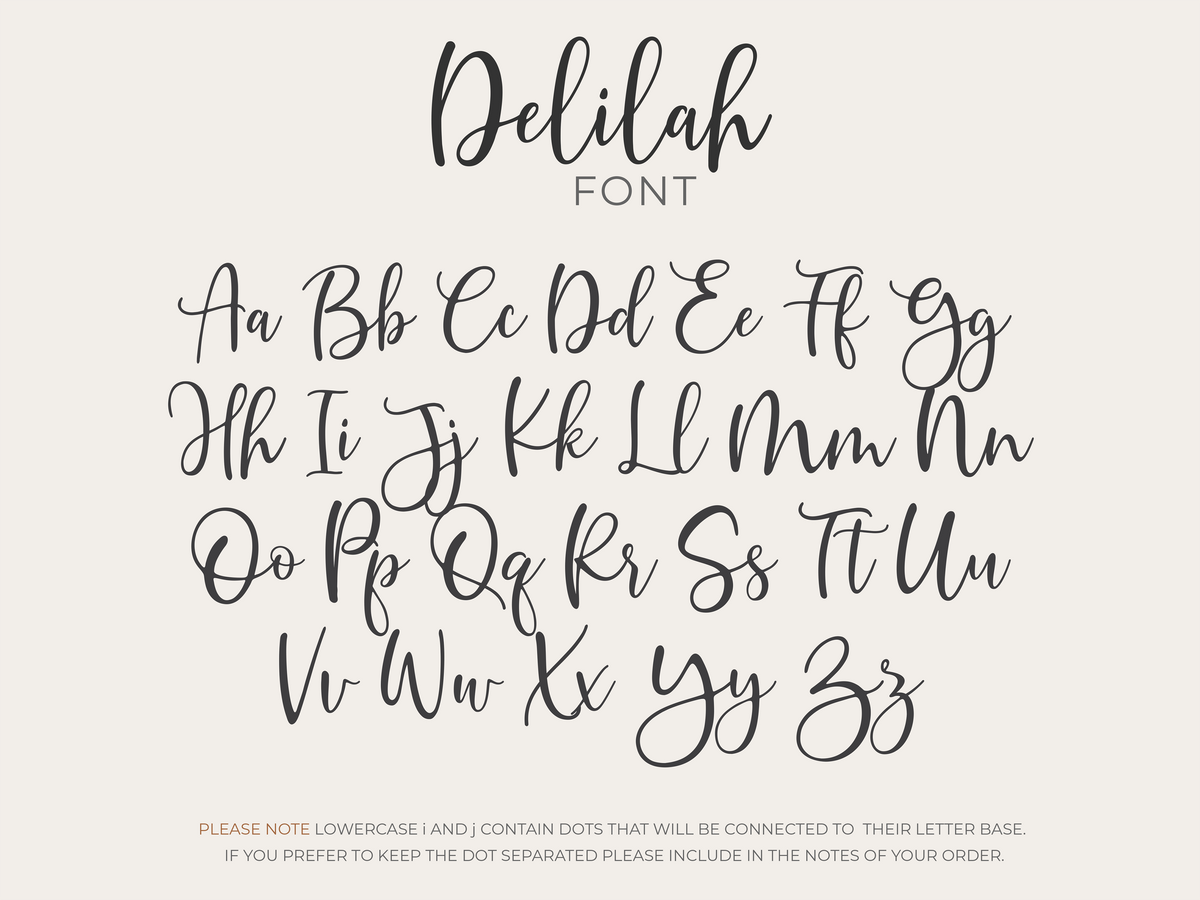 Delilah
FONT
Aa Bb Cc Dd Ee Ff Gg
Hh Ii Jj Kk Ll Mm Nn
Oo Pp Qq Rr Ss Tt Uu
Vv Ww Xx Yy Zz
PLEASE NOTE LOWERCASE i AND j CONTAIN DOTS THAT WILL BE CONNECTED TO THEIR LETTER BASE.
IF YOU PREFER TO KEEP THE DOT SEPARATED PLEASE INCLUDE IN THE NOTES OF YOUR ORDER.